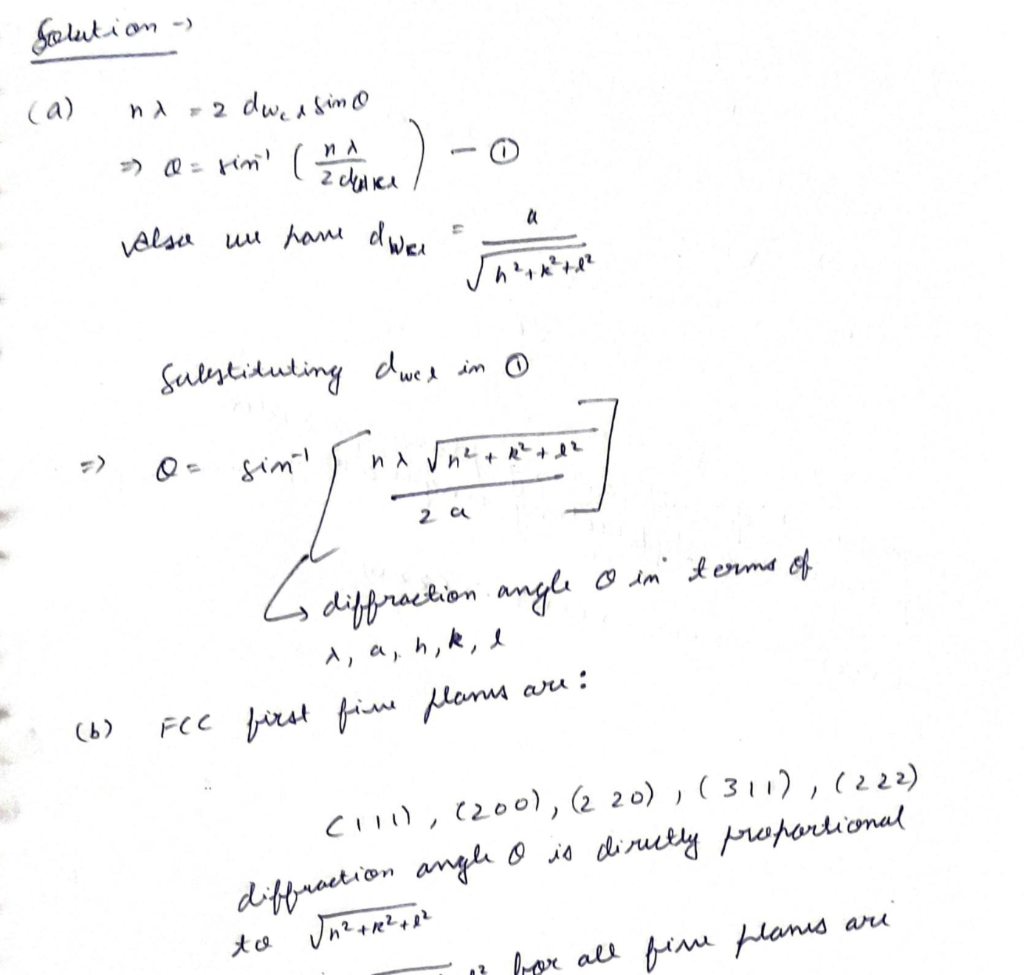 Solution →
(a) nλ = 2 dhkl sinθ
⇒ θ = sin⁻¹ (nλ / 2 dhkl) — ①
Also we have dhkl = a / √h²+k²+l²
Substituting dhkl in ①
⇒ θ = sin⁻¹ [nλ √h²+k²+l² / 2a]
↳ diffraction angle θ in terms of
λ, a, h, k, l
(b) FCC first five planes are :
(111), (200), (220), (311), (222)
diffraction angle θ is directly proportional
to √h²+k²+l²
for all five planes are